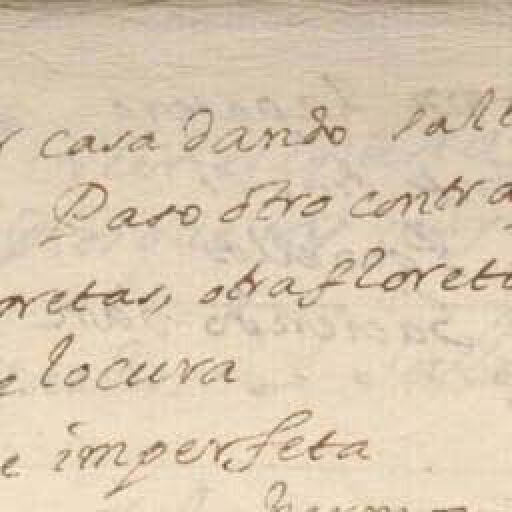 r casa dando salt
Paso otro contra
oretas, otra floret
e locura
e imperfeta